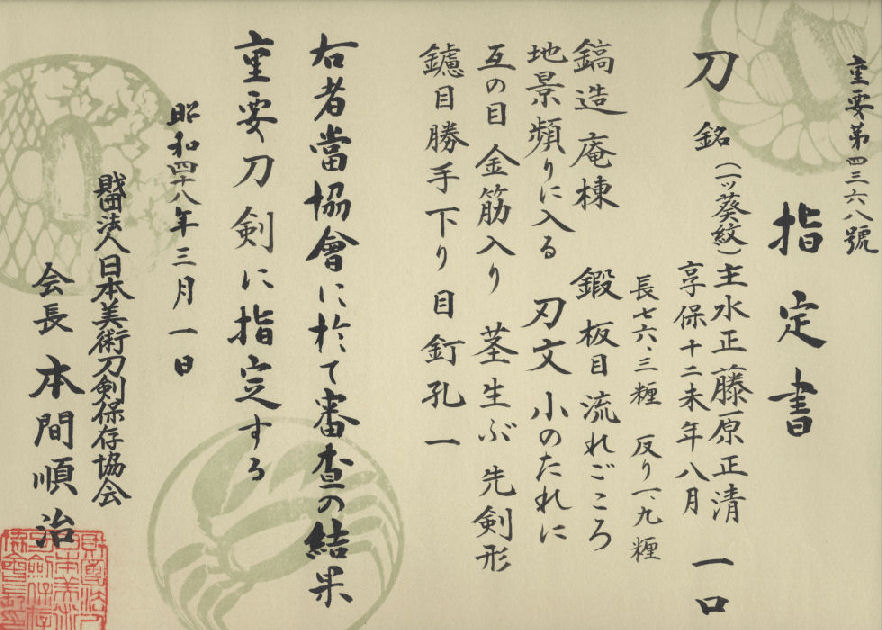 重要第四三六八號
指定書
刀 銘 (一ッ葵紋)主水正藤原正清 一口
享保十二未年八月
長七六、三糎 反り一、九糎
鎬造 庵棟 鍛 板目 流れごころ
地景頻りに入る 刃文 小のたれに
互の目 金筋入り 茎 生ぶ 先剣形
鑢目勝手下り 目釘孔一
右者當協會に於て審査の結果
重要刀剣に指定する
昭和四十八年三月一日
財団法人日本美術刀剣保存協会
会長 本間順治